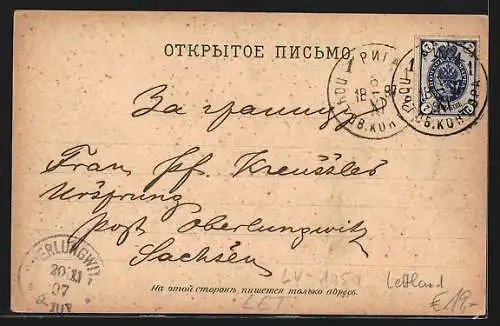 ОТКРЫТОЕ ПИСЬМО.
РИГА
1
18
97
XI
За границу
Frau Pf. Kreussler
Ursprung
post Oberlungwitz
Sachsen
OBERLUNGWITZ
20 XI
97
На этой сторонѣ пишется только адресъ.
LV-1a5a
LET
Lettland
€ 19,-